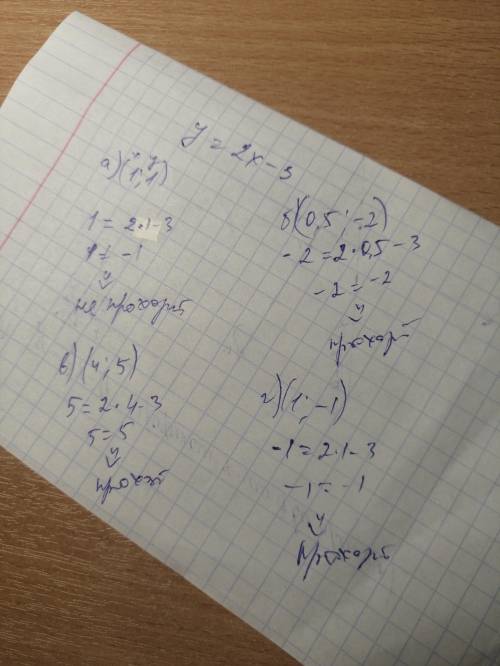 y = 2x - 3
а) (1; 1)
x y
1 = 2·1-3
1 ≠ -1
не проходит
б) (0,5; -2)
-2 = 2·0,5-3
-2 = -2
проходит
в) (4; 5)
5 = 2·4-3
5 = 5
проход
г) (1; -1)
-1 = 2·1-3
-1 = -1
проходит